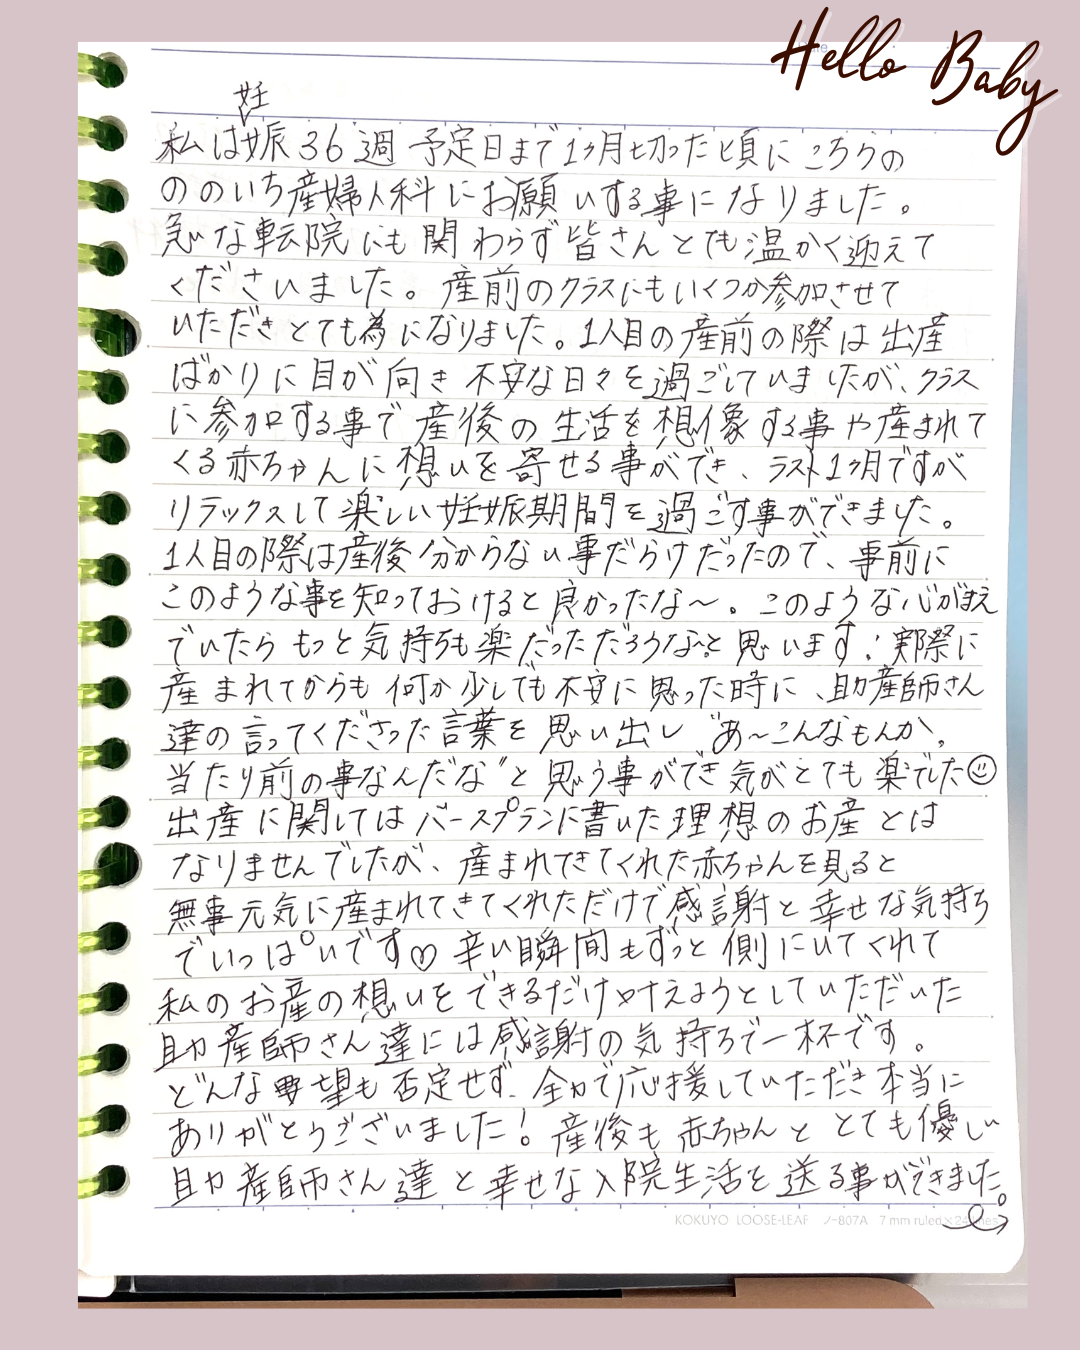 Hello Baby
妊
私は娠36週 予定日まで1ヶ月切った頃に こちらの
ののいち産婦人科にお願いする事になりました。
急な転院にも関わらず皆さんとても温かく迎えて
くださいました。産前のクラスにもいくつか参加させて
いただきとても為になりました。1人目の産前の際は出産
ばかりに目が向き 不安な日々を過ごしていましたが、クラス
に参加する事で 産後の生活を想像する事や産まれて
くる赤ちゃんに想いを寄せる事ができ、ラスト1ヶ月ですが
リラックスして楽しい妊娠期間を過ごす事ができました。
1人目の際は産後分からない事だらけだったので、事前に
このような事を知っておけると良かったな〜。このような心が前え
でいたら もっと気持ちも楽だっただろうなぁと思います! 実際に
産まれてからも 何か少しでも不安に思った時に、助産師さん
達の言ってくださった言葉を思い出し "あ〜こんなもんか、
当たり前の事なんだな"と思う事ができ気がとても楽でした☺
出産に関してはバースプランに書いた理想のお産とは
なりませんでしたが、産まれてきてくれた赤ちゃんを見ると
無事元気に産まれてきてくれただけで感謝と幸せな気持ち
でいっぱいです♡ 辛い瞬間もずっと側にいてくれて
私のお産の想いをできるだけ叶えようとしていただいた
助産師さん達には感謝の気持ちで一杯です。
どんな要望も否定せず、全力で応援していただき本当に
ありがとうございました! 産後も赤ちゃんととても優しい
助産師さん達と幸せな入院生活を送る事ができました。
KOKUYO LOOSE-LEAF ノ-807A 7 mm ruled×24 lines